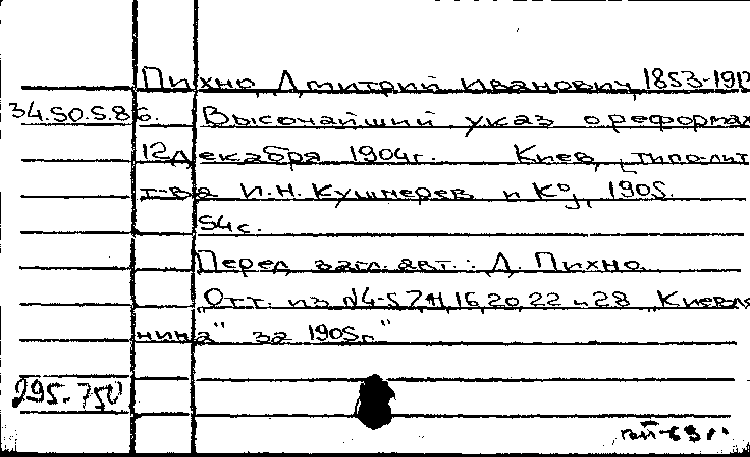 Пихно, Дмитрий Иванович, 1853-191
34.50.5.86. Высочайший указ о реформах
12 декабря 1904г. Киев, типолит.
т-ва И.Н. Кушнерев и К⁰, 1905.
54с.
Перед загл. авт.: Д. Пихно.
"Отт. из №4-5,7,11,16,20,22 и 28 "Киевля
нина" за 1905г."
295-750